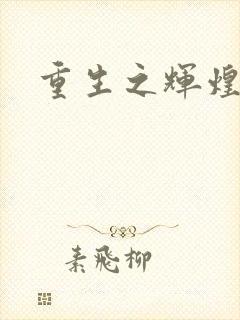 重生之辉煌
素飛柳